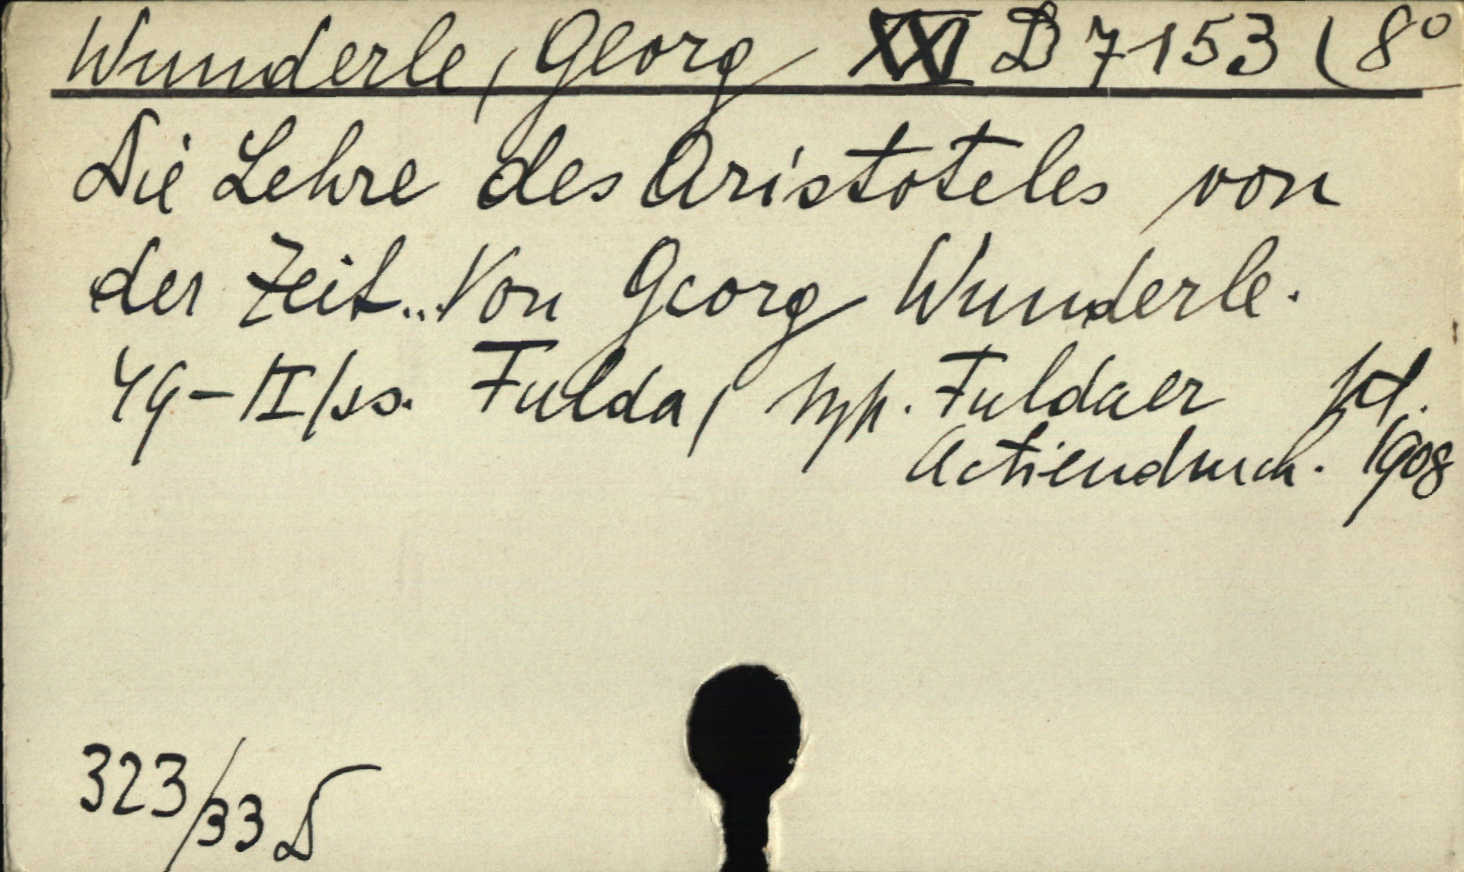 Wunderle, Georg XXI B 7153 (8°
Die Lehre des Aristoteles von
der Zeit... Von Georg Wunderle.
Fulda, typ. Fuldaer
Actiendruck. 1908
323/33 D